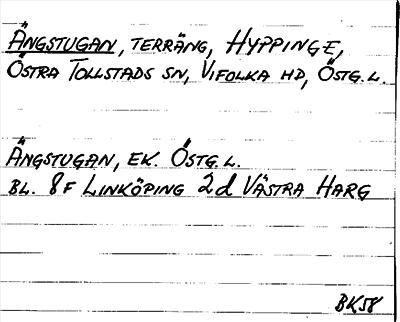 ÄNGSTUGAN, TERRÄNG, HYPPINGE,
ÖSTRA TOLLSTADS SN, VIFOLKA HD, ÖSTG.L.
ÄNGSTUGAN, EK. ÖSTG.L.
BL. 8F LINKÖPING 2d VÄSTRA HARG
BK58